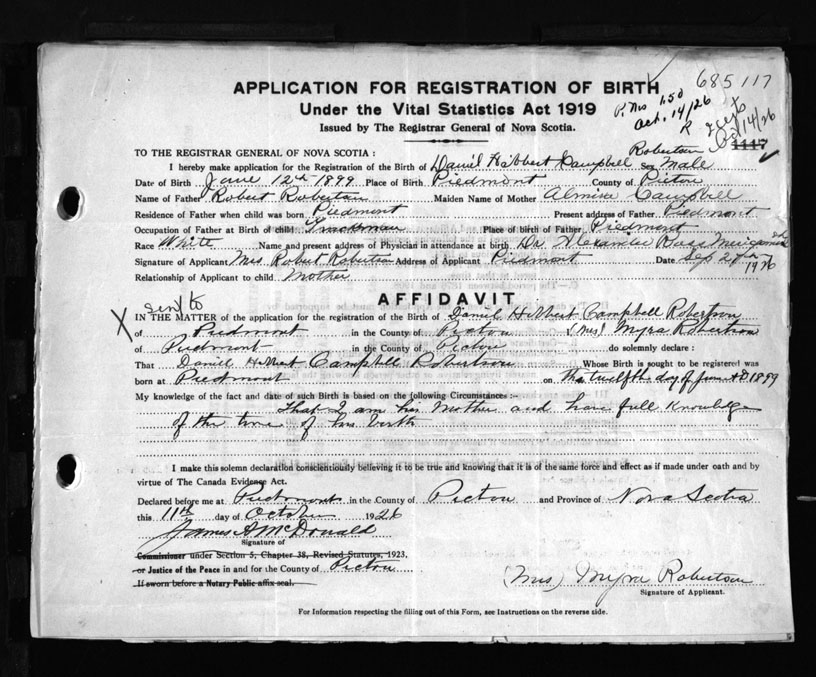 APPLICATION FOR REGISTRATION OF BIRTH
685117
Under the Vital Statistics Act 1919
P. Nos 150
Oct. 14/26
Issued by The Registrar General of Nova Scotia.
R
Oct 14/26
Robertson
1117
TO THE REGISTRAR GENERAL OF NOVA SCOTIA :
I hereby make application for the Registration of the Birth of Daniel Hibbert Campbell Sex Male
Date of Birth June 12th 1899 Place of Birth Piedmont County of Pictou
Name of Father Robert Robertson Maiden Name of Mother Almira Campbell
Residence of Father when child was born Piedmont Present address of Father Piedmont
Occupation of Father at Birth of child Trackman Place of birth of Father Piedmont
Race White Name and present address of Physician in attendance at birth Dr. Alexander Ross
Signature of Applicant Mrs Robert Robertson Address of Applicant Piedmont Date Sep 27th 1926
Relationship of Applicant to child Mother
AFFIDAVIT
X
IN THE MATTER of the application for the registration of the Birth of Daniel Hibbert Campbell Robertson
of Piedmont in the County of Pictou (Mrs) Myra Robertson
of Piedmont in the County of Pictou do solemnly declare :
That Daniel Hibbert Campbell Robertson Whose Birth is sought to be registered was
born at Piedmont on the twelfth day of June AD 1899
My knowledge of the fact and date of such Birth is based on the following Circumstances :-
That I am his Mother and have full knowledge
of the time of his birth
I make this solemn declaration conscientiously believing it to be true and knowing that it is of the same force and effect as if made under oath and by
virtue of The Canada Evidence Act.
Declared before me at Piedmont in the County of Pictou and Province of Nova Scotia
this 11th day of October 1926
James A McDonald
Signature of
Commissioner under Section 5, Chapter 38, Revised Statutes, 1923,
or Justice of the Peace in and for the County of Pictou
If sworn before a Notary Public affix seal.
(Mrs) Myra Robertson
Signature of Applicant.
For Information respecting the filling out of this Form, see Instructions on the reverse side.